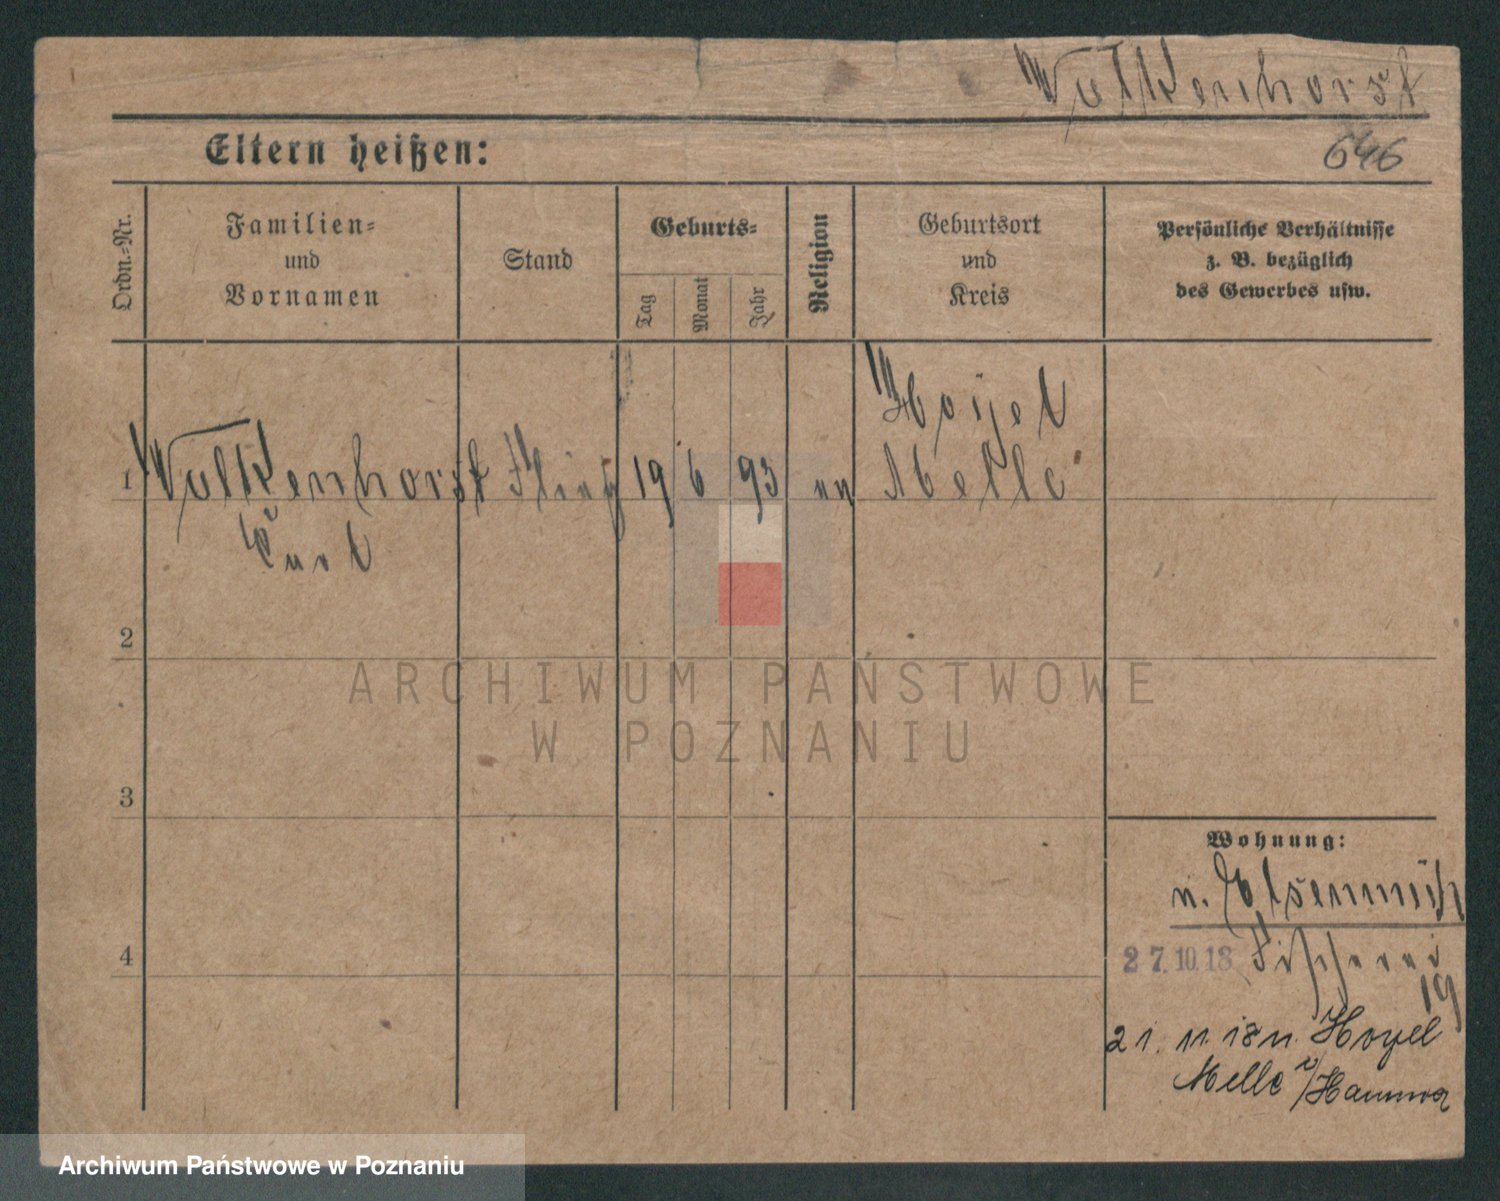 Wulkenhorst
646
Eltern heißen:
Ordn.-Nr.
Familien-
und
Vornamen
Stand
Geburts-
Tag
Monat
Jahr
Religion
Geburtsort
und
Kreis
Persönliche Verhältnisse
z. B. bezüglich
des Gewerbes usw.
1 Wulkenhorst 19 6 93 Hoyel
Melle
Curt
2
3
4
Wohnung:
27.10.18
19
21. 11. 18 n. Hoyel
Melle
ARCHIWUM PAŃSTWOWE
W POZNANIU
Archiwum Państwowe w Poznaniu